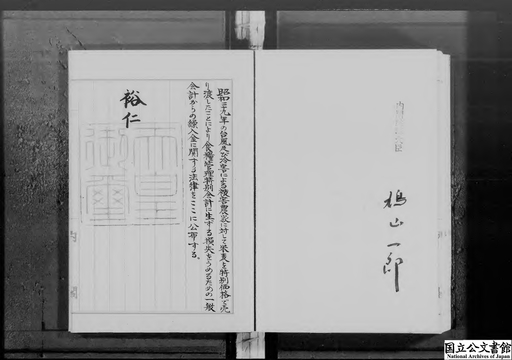 内閣総理大臣
鳩山一郎
昭和二十九年の台風及び冷害による被害農家に対して米麦を特別価格で売
り渡したことにより食糧管理特別会計に生ずる損失をうめるための一般
会計からの繰入金に関する法律をここに公布する。
裕仁
天皇
御璽
国立公文書館
National Archives of Japan